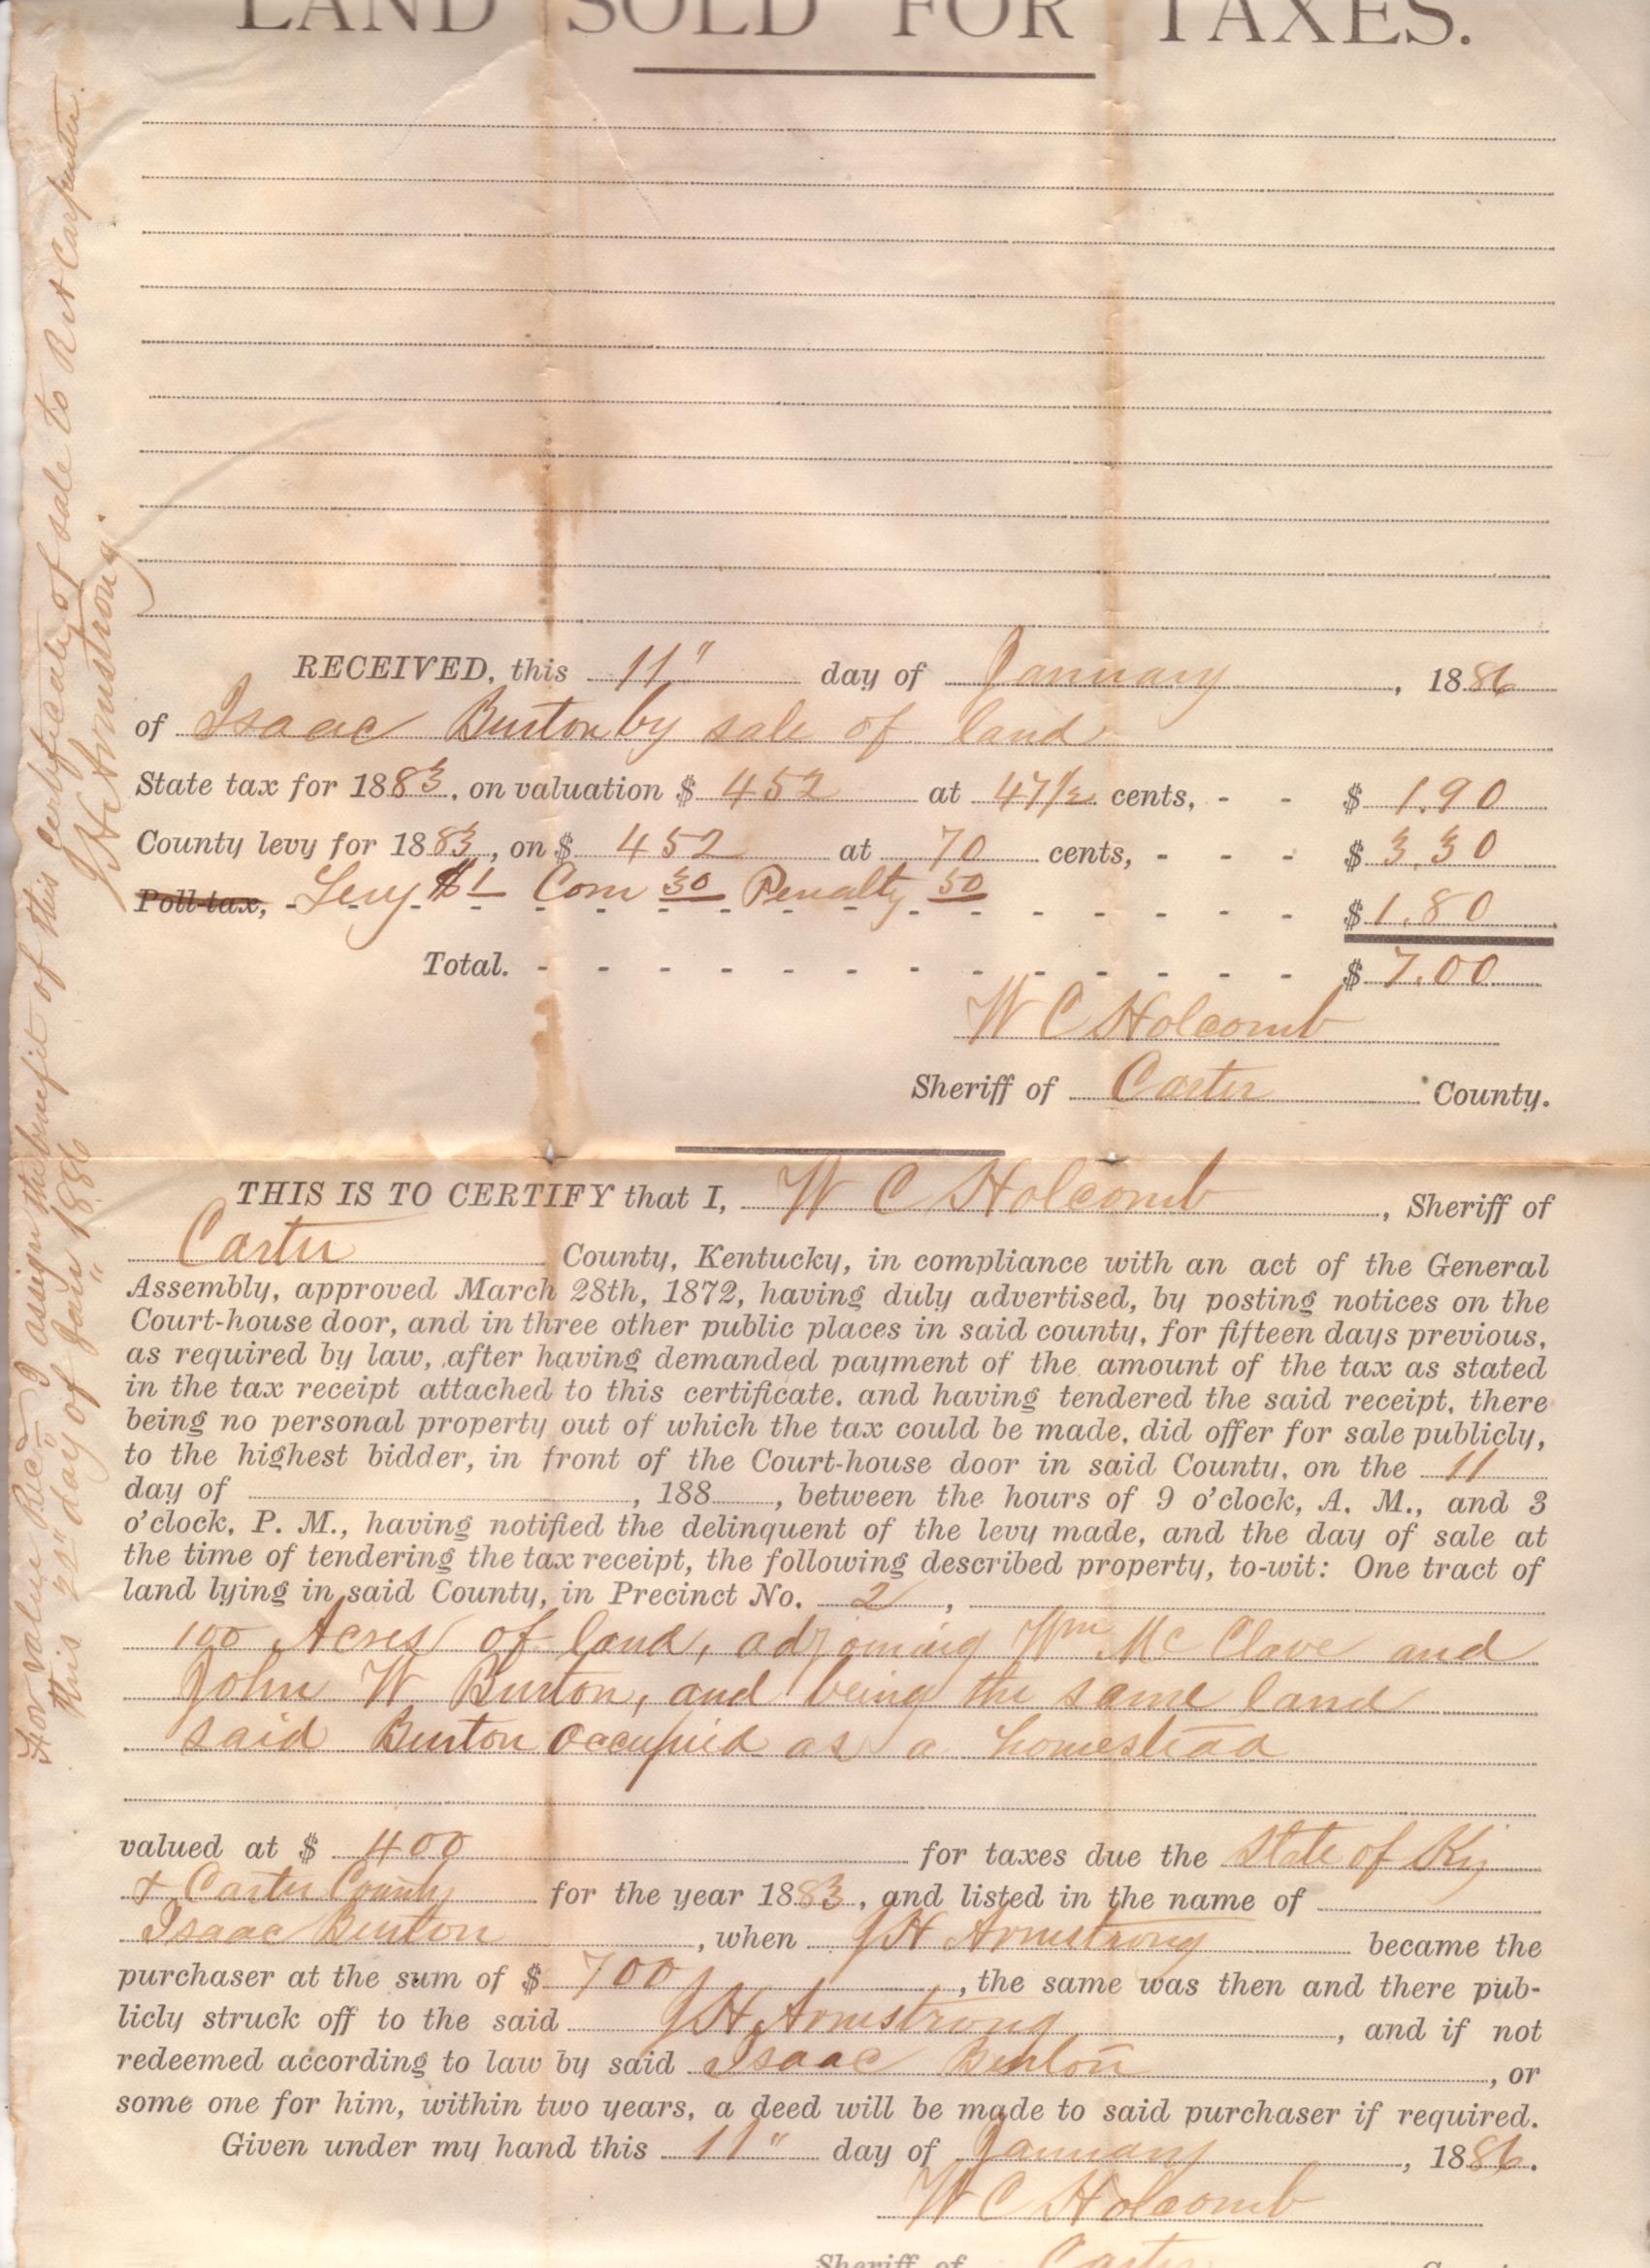 LAND SOLD FOR TAXES.
RECEIVED, this 11" day of January, 1886
of Isaac Burton by sale of land
State tax for 1883, on valuation $ 452 at 47 1/2 cents, - - $ 1.90
County levy for 1883, on $ 452 at 70 cents, - - - $ 3.30
Poll-tax, - Levy $1 Com 30 Penalty 50 - - - $ 1.80
Total. - - - - - - - - - - - - - $ 7.00
W C Holcomb
Sheriff of Carter County.
THIS IS TO CERTIFY that I, W C Holcomb, Sheriff of
Carter County, Kentucky, in compliance with an act of the General
Assembly, approved March 28th, 1872, having duly advertised, by posting notices on the
Court-house door, and in three other public places in said county, for fifteen days previous,
as required by law, after having demanded payment of the amount of the tax as stated
in the tax receipt attached to this certificate, and having tendered the said receipt, there
being no personal property out of which the tax could be made, did offer for sale publicly,
to the highest bidder, in front of the Court-house door in said County, on the 11
day of , 188 , between the hours of 9 o'clock, A. M., and 3
o'clock, P. M., having notified the delinquent of the levy made, and the day of sale at
the time of tendering the tax receipt, the following described property, to-wit: One tract of
land lying in said County, in Precinct No. 2,
100 Acres of land, adjoining Wm McClave and
John W Burton, and being the same land
said Burton occupied as a homestead
valued at $ 400 for taxes due the State of Ky
& Carter County for the year 1883, and listed in the name of
Isaac Burton, when J H Armstrong became the
purchaser at the sum of $ 7 00, the same was then and there pub-
licly struck off to the said J H Armstrong, and if not
redeemed according to law by said Isaac Burton, or
some one for him, within two years, a deed will be made to said purchaser if required.
Given under my hand this 11" day of January, 1886.
W C Holcomb
Sheriff of Carter
For value Rec'd I assign the benefit of this certificate of sale to R & t Carpenter.
this day of Jan'' 1886 J H Armstrong.